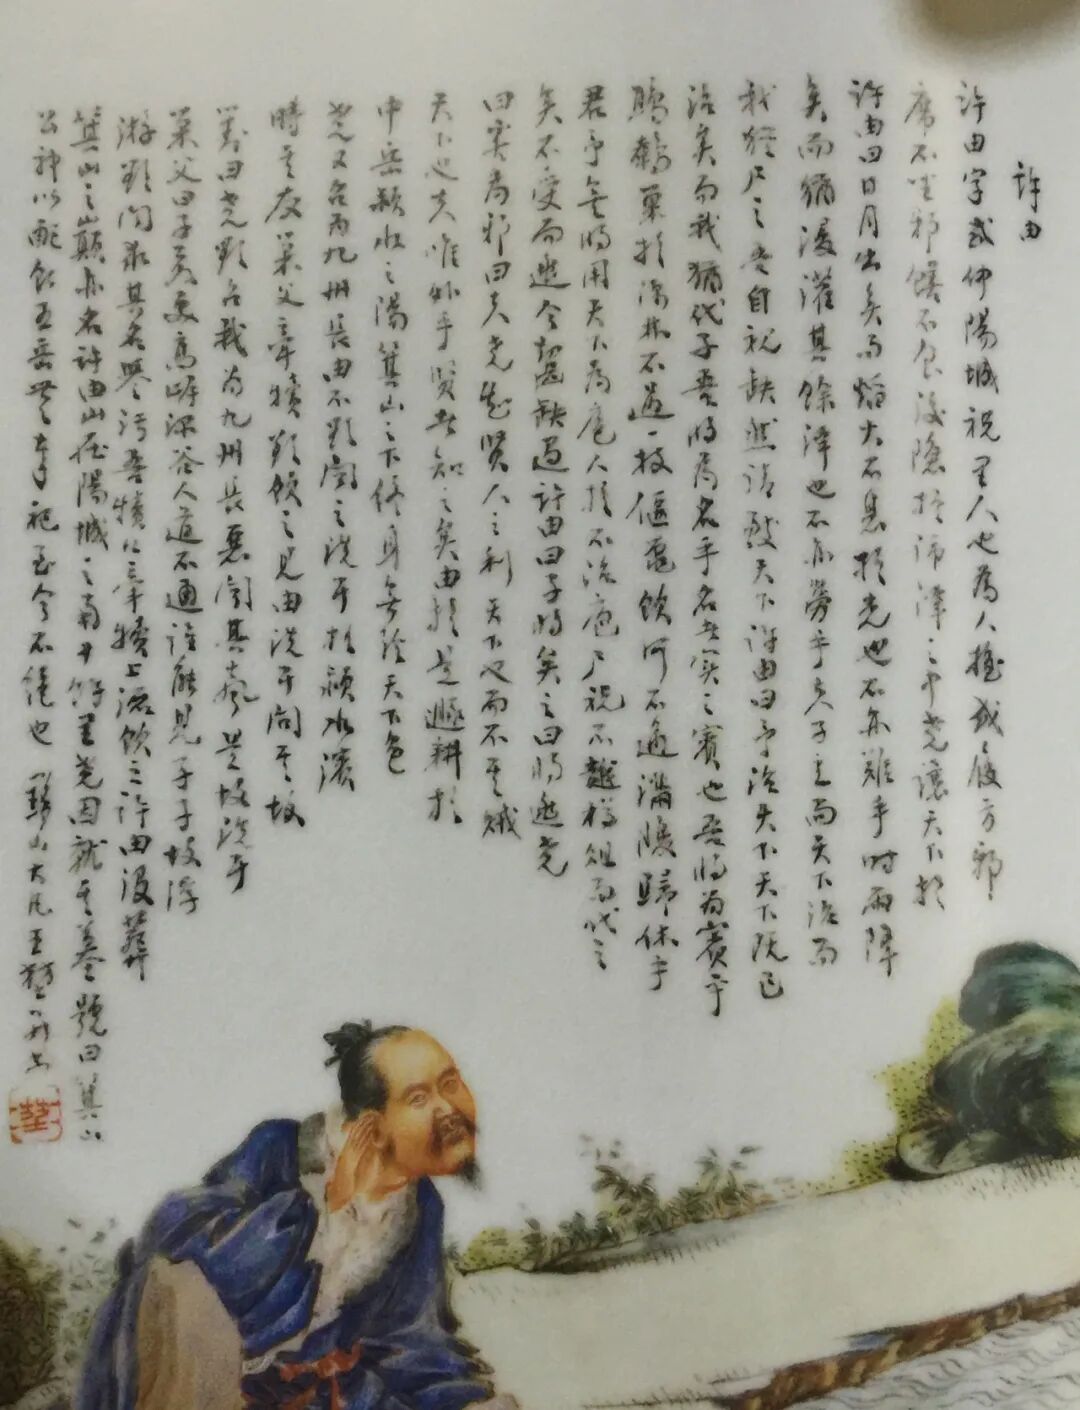 許由
許由字武仲陽城槐里人也為人據義履方邪
席不坐邪饍不食後隱於沛澤之中堯讓天下於
許由曰日月出矣而爝火不息於光也不亦難乎時雨降
矣而猶浸灌其餘澤也不亦勞乎夫子立而天下治而
我猶尸之吾自視缺然請致天下許由曰子治天下天下既已
治矣而我猶代子吾將為名乎名者實之賓也吾將為賓乎
鷦鷯巢於深林不過一枝偃鼠飲河不過滿腹歸休乎
君予無所用天下為庖人雖不治庖尸祝不越樽俎而代之
矣不受而逃去齧缺遇許由曰子將奚之曰將逃堯
曰奚為邪曰夫堯知賢人之利天下也而不知其賊
天下也夫唯外乎賢者知之矣由於是遁耕於
中岳潁水之陽箕山之下終身無經天下色
堯又召為九州長由不欲聞之洗耳於潁水濱
時其友巢父牽犢欲飲之見由洗耳問其故
對曰堯欲召我為九州長惡聞其聲是故洗耳
巢父曰子若處高岸深谷人道不通誰能見子子故浮
游欲聞求其名譽污吾犢口牽犢上流飲之許由沒葬
箕山之巔亦名許由山在陽城之南十餘里堯因就其墓號曰箕山
公神以配食五岳世世奉祀至今不絕也